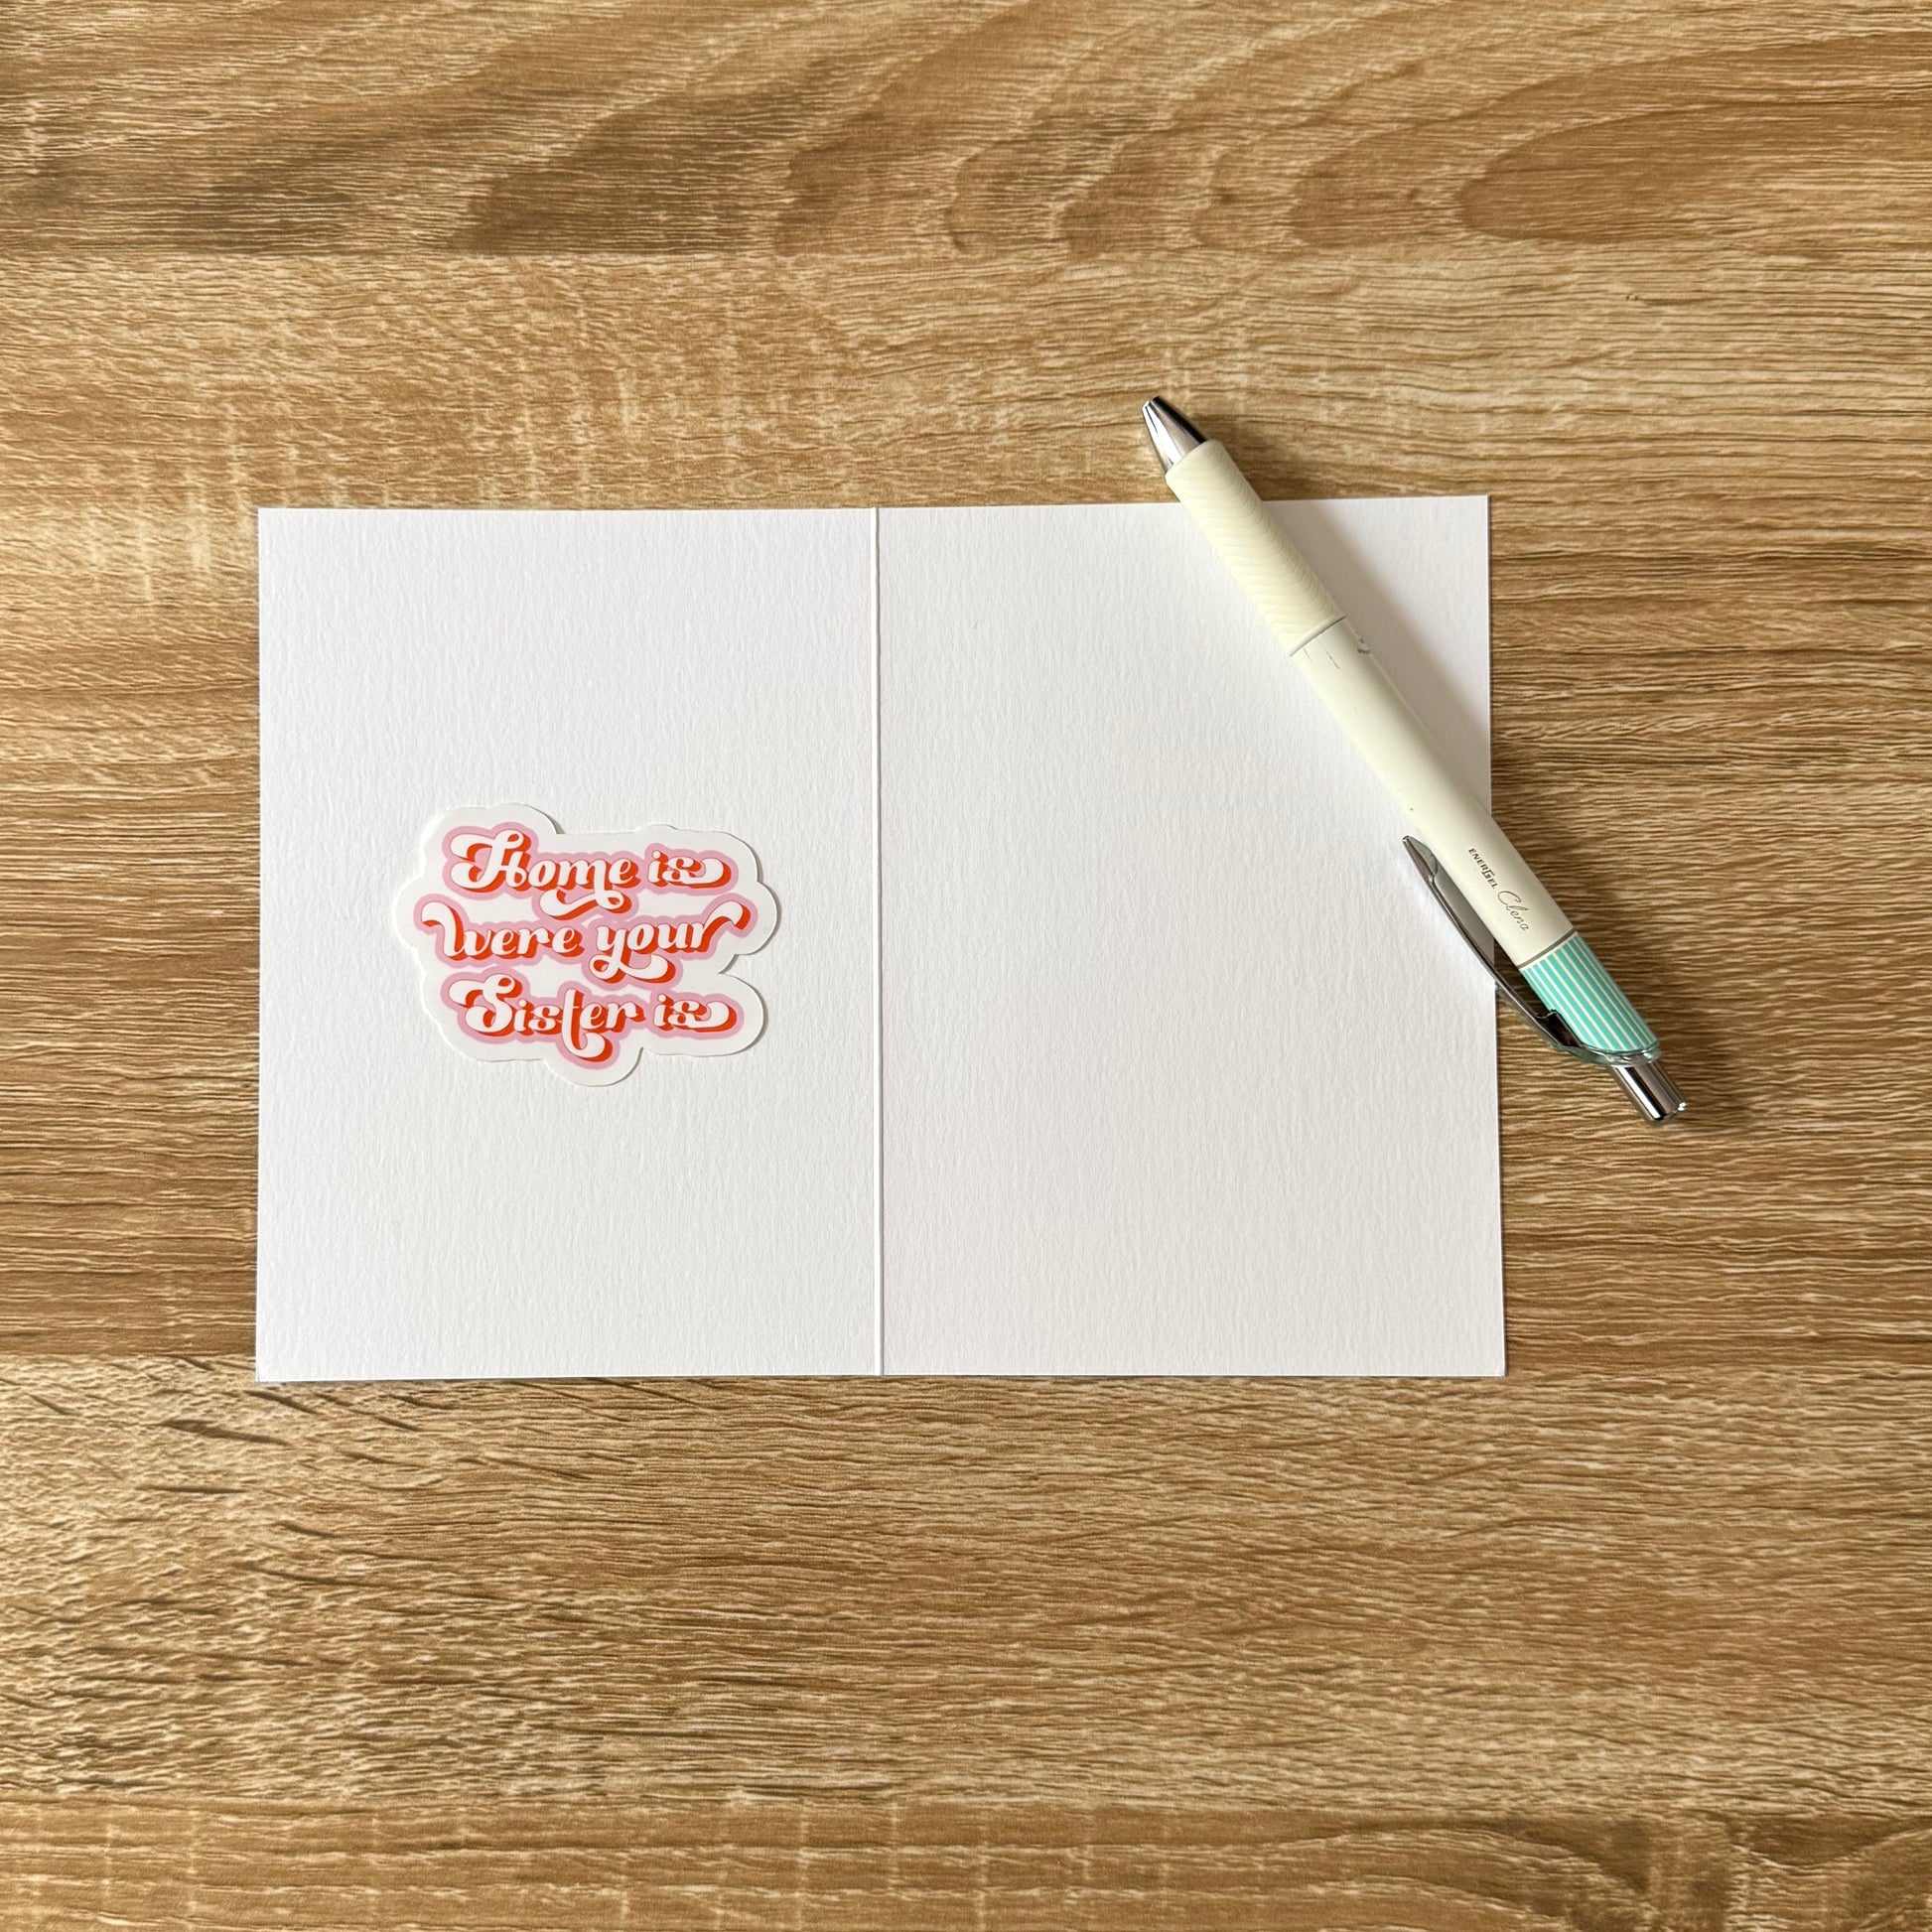 Home is
were your
Sister is
ENERGEL Clena